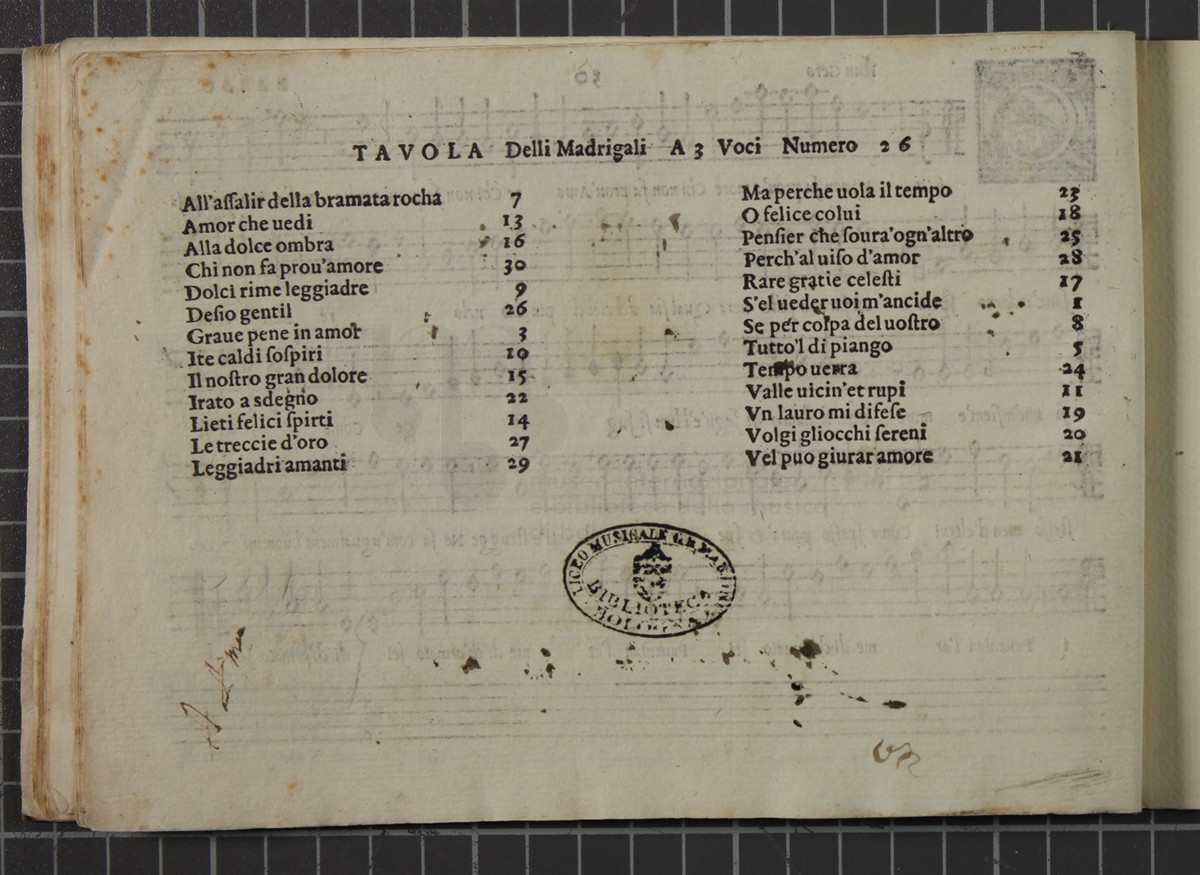 TAVOLA Delli Madrigali A 3 Voci Numero 26
All'aſſalir della bramata rocha 7
Amor che uedi 13
Alla dolce ombra 16
Chi non fa prou'amore 30
Dolci rime leggiadre 9
Deſio gentil 26
Graue pene in amor 3
Ite caldi ſoſpiri 10
Il noſtro gran dolore 15
Irato a sdegno 22
Lieti felici ſpirti 14
Le treccie d'oro 27
Leggiadri amanti 29
Ma perche uola il tempo 23
O felice colui 18
Penſier che ſoura'ogn'altro 25
Perch'al uiſo d'amor 28
Rare gratie celeſti 17
S'el ueder uoi m'ancide 1
Se per colpa del uoſtro 8
Tutto'l di piango 5
Tempo uerra 24
Valle uicin'et rupi 11
Vn lauro mi difeſe 19
Volgi gliocchi ſereni 20
Vel puo giurar amore 21
LICEO MUSICALE G.B. MARTINI
BIBLIOTECA
BOLOGNA